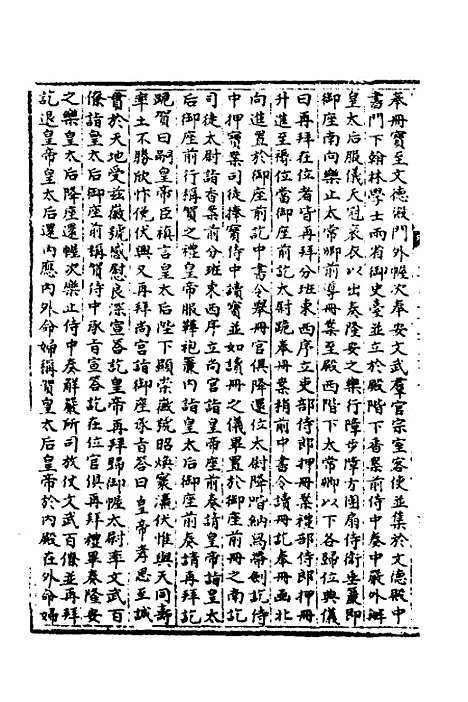 奉冊寶至文德殿門外幄次奉安文武羣官宗室客使並集於文德殿中
書門下翰林學士兩省御史臺並立於殿階下香案前侍中奏中嚴外辦
皇太后服儀天冠袞衣以出奏隆安之樂行障步障方團扇侍衛垂簾即
御座南向樂止太常卿前導冊案至殿西階下太常卿以下各歸位典儀
曰再拜在位者皆再拜分班東西序立吏部侍郎押冊案禮部侍郎押冊
升進至褥位當御座前訖太尉跪奉冊案稍前中書令讀冊訖奉冊函北
向進置於御座前訖中書令舉冊官俱降還位太尉降階納舄帶劍訖侍
中押寶案司徒捧寶侍中讀寶並如讀冊之儀畢置於御座前冊之南訖
司徒太尉詣香案前分班東西序立尚宮詣皇帝座前奏請皇帝詣皇太
后御座前行稱賀之禮皇帝服鞾袍簾内詣皇太后御座前奏請再拜訖
跪賀曰嗣皇帝臣稹言皇太后陛下顯崇徽號昭煥寰瀛伏惟與天同壽
率土不勝欣忭俛伏興又再拜尚宮詣御座承旨荅曰皇帝孝思至誠
貫於天地受茲徽號感慰良深宣荅訖皇帝再拜歸御幄太尉率文武百
僚詣皇太后御座前稱賀侍中承旨宣荅訖在位官俱再拜禮畢奏隆安
之樂皇太后降座還幄次樂止侍中奏解嚴所司放仗文武百僚並再拜
訖退皇帝皇太后還内應内外命婦稱賀皇太后皇帝於内殿在外命婦